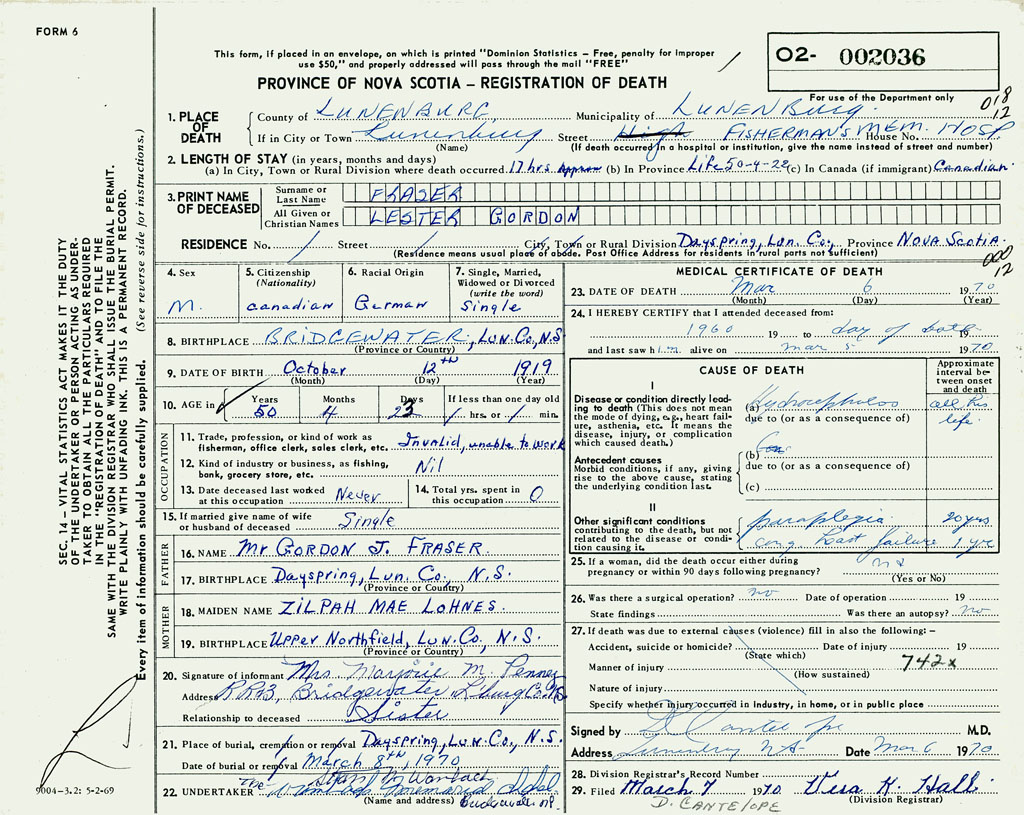 FORM 6
This form, if placed in an envelope, on which is printed "Dominion Statistics – Free, penalty for improper
use $50," and properly addressed will pass through the mail "FREE"
O2- 002036
PROVINCE OF NOVA SCOTIA – REGISTRATION OF DEATH
For use of the Department only
018
12
1. PLACE OF DEATH County of LUNENBURG, Municipality of LUNENBURG
If in City or Town Lunenburg Street High FISHERMAN'S MEM. HOSP House No.
(Name) (If death occurred in a hospital or institution, give the name instead of street and number)
2. LENGTH OF STAY (in years, months and days)
(a) In City, Town or Rural Division where death occurred 17 hrs approx (b) In Province Life 50-4-22 (c) In Canada (if immigrant) Canadian
3. PRINT NAME OF DECEASED
Surname or Last Name FRASER
All Given or Christian Names LESTER GORDON
RESIDENCE No. / Street / City, Town or Rural Division Dayspring, Lun. Co., Province NOVA SCOTIA.
(Residence means usual place of abode. Post Office Address for residents in rural parts not sufficient)
000
12
4. Sex M.
5. Citizenship (Nationality) Canadian
6. Racial Origin German
7. Single, Married, Widowed or Divorced (write the word) Single
8. BIRTHPLACE BRIDGEWATER, LUN. CO., N.S
(Province or Country)
9. DATE OF BIRTH October 12th 1919
(Month) (Day) (Year)
10. AGE in Years 50 Months 4 Days 23 If less than one day old / hrs. or / min.
OCCUPATION
11. Trade, profession, or kind of work as fisherman, office clerk, sales clerk, etc. Invalid, unable to work
12. Kind of industry or business, as fishing, bank, grocery store, etc. Nil
13. Date deceased last worked at this occupation Never
14. Total yrs. spent in this occupation 0
15. If married give name of wife or husband of deceased Single
FATHER
16. NAME Mr GORDON J. FRASER.
17. BIRTHPLACE Dayspring, Lun. Co., N.S.
(Province or Country)
MOTHER
18. MAIDEN NAME ZILPAH MAE LOHNES.
19. BIRTHPLACE Upper Northfield, Lun. Co, N.S.
(Province or Country)
20. Signature of informant Mrs. Marjorie M. Penney
Address RR#3, Bridgewater L'burg Co. N.S
Relationship to deceased Sister
21. Place of burial, cremation or removal Dayspring, Lun. Co., N.S.
Date of burial or removal March 8th, 1970
22. UNDERTAKER The Memorial
(Name and address)
MEDICAL CERTIFICATE OF DEATH
23. DATE OF DEATH Mar 6 1970
(Month) (Day) (Year)
24. I HEREBY CERTIFY that I attended deceased from:
1960 19 to day of death 19
and last saw him alive on Mar 5 1970
CAUSE OF DEATH
Approximate interval between onset and death
I
Disease or condition directly leading to death (This does not mean the mode of dying, e.g., heart failure, asthenia, etc. It means the disease, injury, or complication which caused death.)
(a) Hydrocephalos all his life.
due to (or as a consequence of)
Antecedent causes
Morbid conditions, if any, giving rise to the above cause, stating the underlying condition last.
(b)
due to (or as a consequence of)
(c)
II
Other significant conditions contributing to the death, but not related to the disease or condition causing it.
paraplegia 20 yrs
cong. heart failure 1 yr
25. If a woman, did the death occur either during pregnancy or within 90 days following pregnancy?
(Yes or No)
26. Was there a surgical operation? no Date of operation 19
State findings Was there an autopsy? no
27. If death was due to external causes (violence) fill in also the following: –
Accident, suicide or homicide? Date of injury 19
(State which)
742x
Manner of injury
(How sustained)
Nature of injury
Specify whether injury occurred in industry, in home, or in public place
Signed by D Cantelope M.D.
Address Lunenburg NS Date Mar 6 1970
28. Division Registrar's Record Number
29. Filed March 7 1970 Vera K. Hall
(Division Registrar)
D. CANTELOPE
SEC. 14 – VITAL STATISTICS ACT MAKES IT THE DUTY
OF THE UNDERTAKER OR PERSON ACTING AS UNDER-
TAKER TO OBTAIN ALL THE PARTICULARS REQUIRED
IN THE "REGISTRATION OF DEATH" AND TO FILE THE
SAME WITH THE DIVISION REGISTRAR WHO SHALL ISSUE THE BURIAL PERMIT.
WRITE PLAINLY WITH UNFADING INK. THIS IS A PERMANENT RECORD.
Every item of information should be carefully supplied. (See reverse side for instructions.)
9004-3.2: 5-2-69